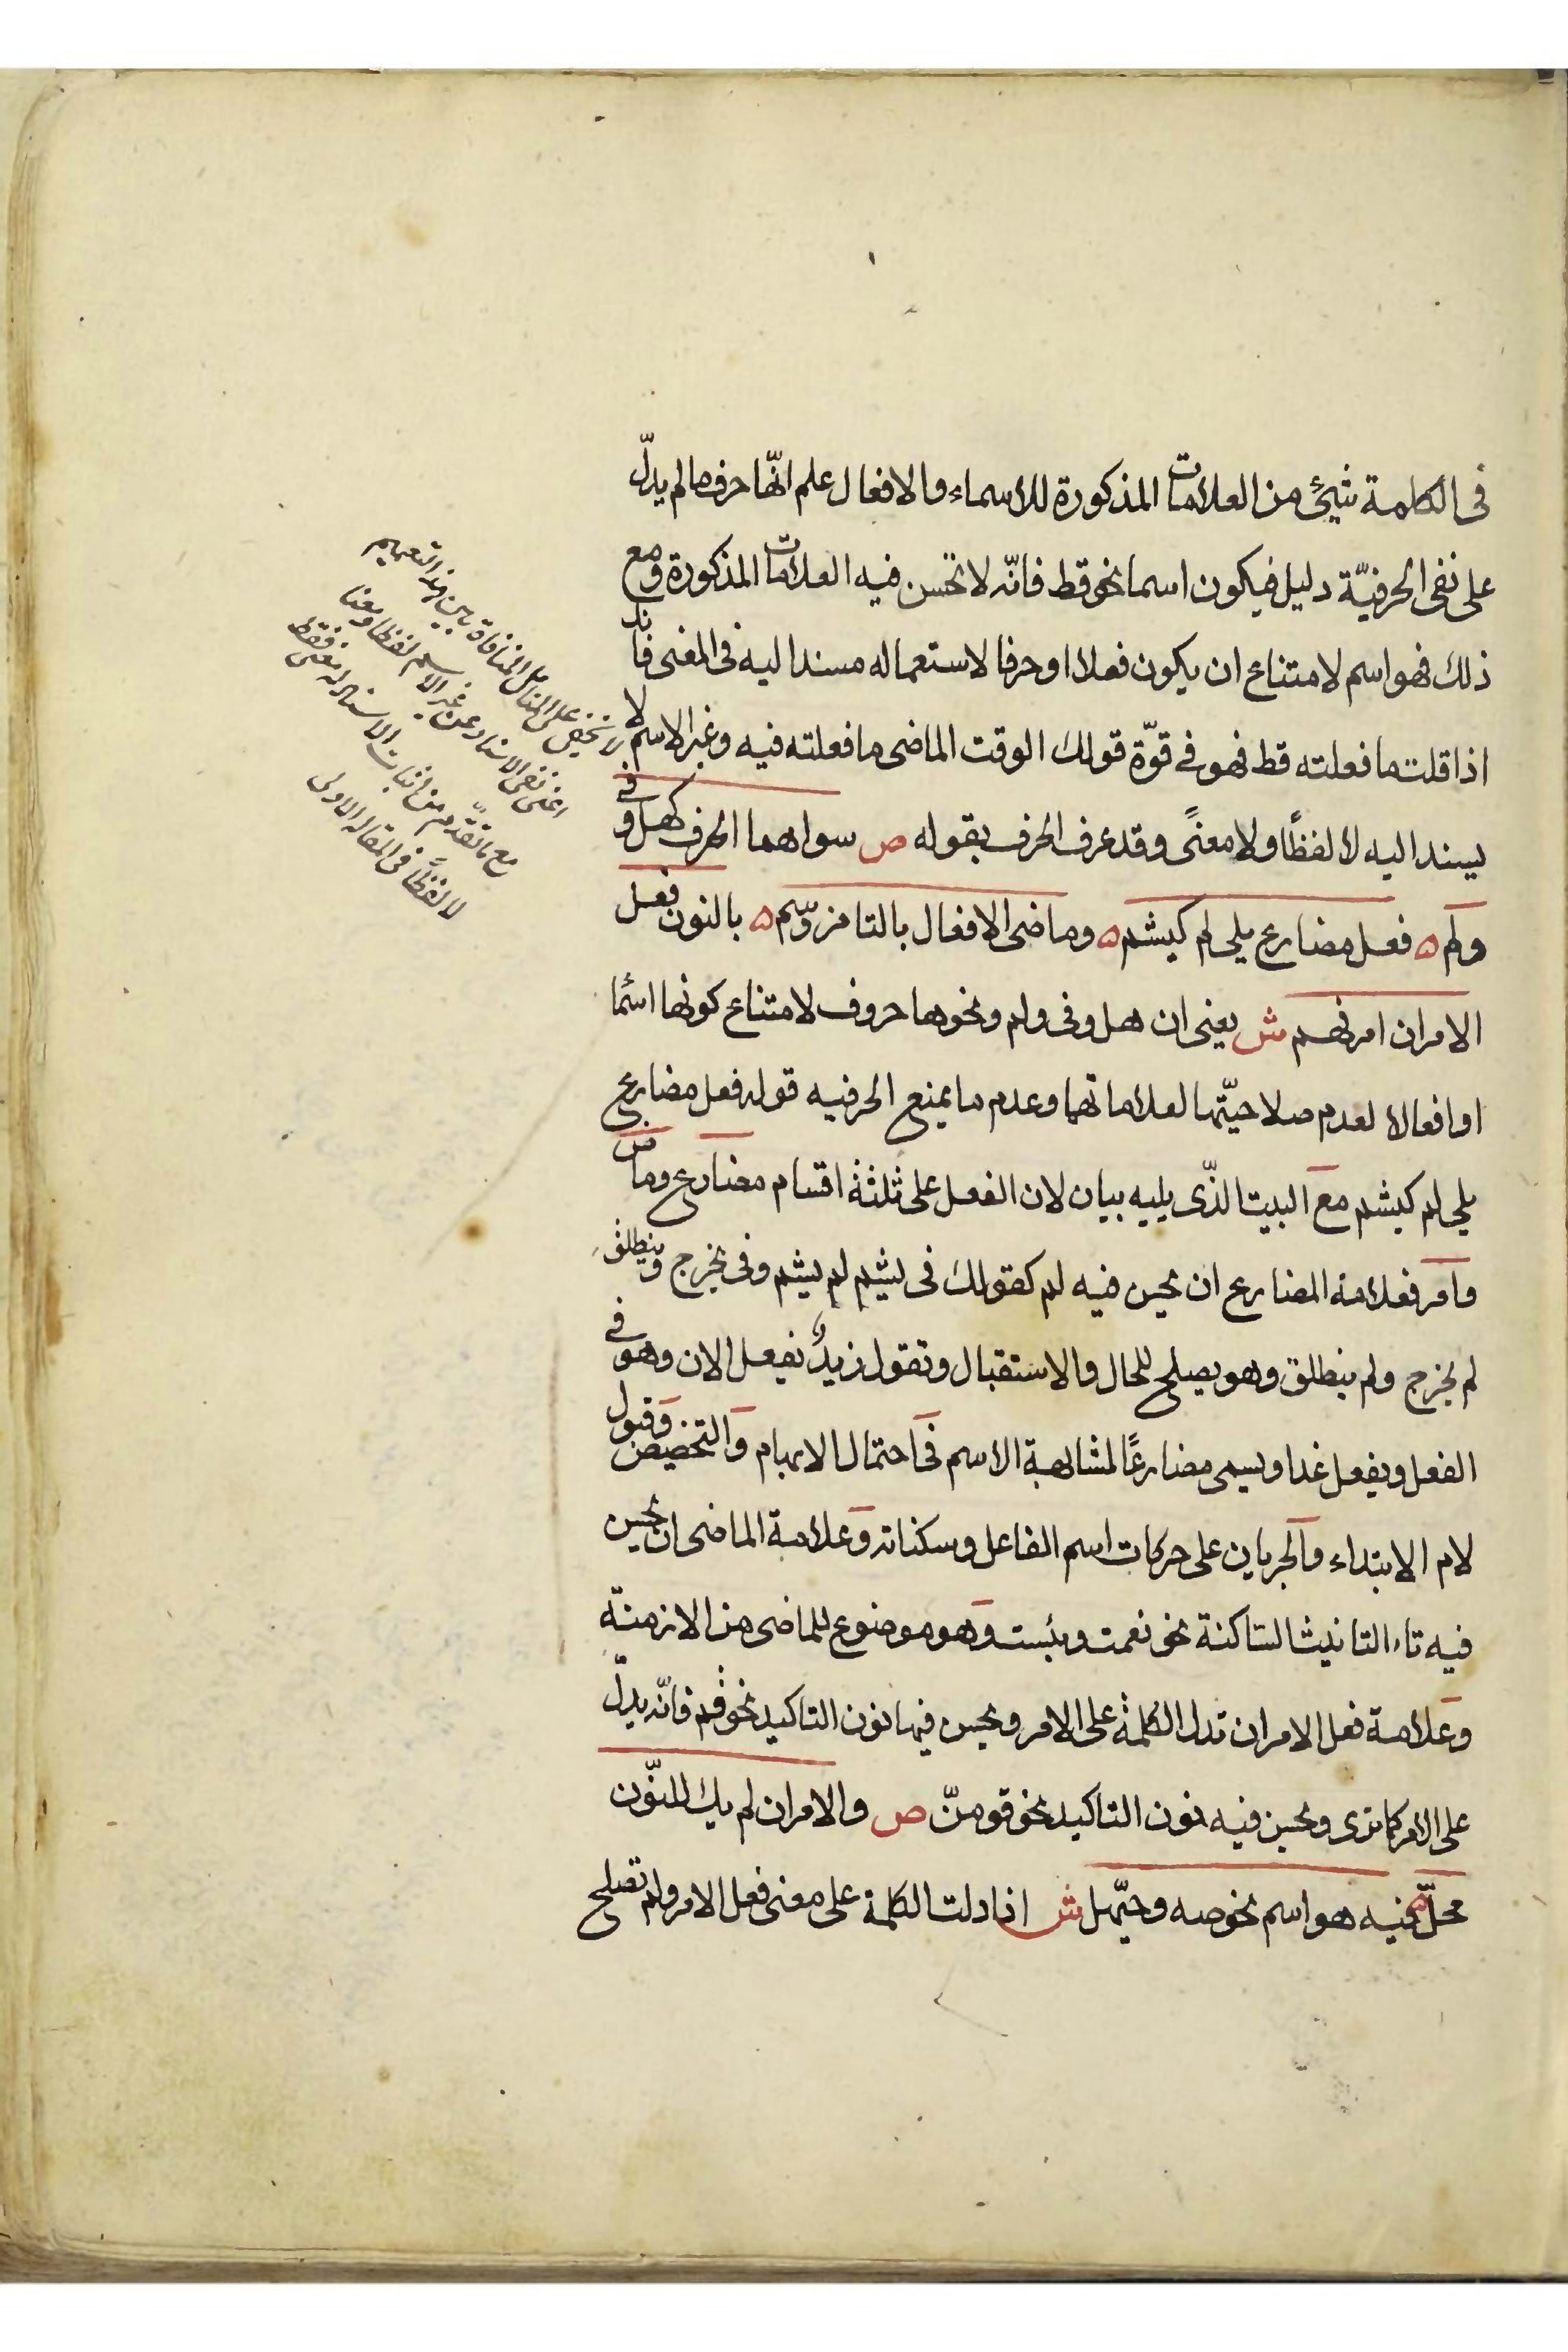 فى الكلمة شيئ من العلامات المذكورة للاسماء والافعال علم انّها حرف ما لم يدلّ
على نفى الحرفيّة دليل فيكون اسما نحو قط فانّه لا تحسن فيه العلامات المذكورة ومع
ذلك فهو اسم لامتناع ان يكون فعلا او حرفا لاستعماله مسندا اليه فى المعنى فانك
اذا قلت ما فعلته قط فهو فى قوّة قولك الوقت الماضى ما فعلته فيه وغير الاسم لا
يسند اليه لا لفظًا ولا معنًى وقد عرف الحرف بقوله ص سواهما الحرف كهل وفى
ولم ه فعل مضارع يلى لم كيشم ه وماضى الافعال بالتا مز وسم ه بالنون فعل
الامر ان امر فهم ش يعنى ان هل وفى ولم ونحوها حروف لامتناع كونها اسما
او افعالا لعدم صلاحيّتها لعلاماتهما وعدم ما يمنع الحرفيه قوله فعل مضارع
يلى لم كيشم مع البيت الذّى يليه بيان لان الفعل على ثلثة اقسام مضارع وماض
وامر فعلامة المضارع ان يحسن فيه لم كقولك فى يشم لم يشم وفى يخرج وينطلق
لم يخرج ولم ينطلق وهو يصلح للحال والاستقبال وتقول زيدٌ يفعل الان وهو فى
الفعل ويفعل غدا ويسمى مضارعًا لمشابهة الاسم فى احتمال الابهام والتخصيص وقبول
لام الابتداء والجريان على حركات اسم الفاعل وسكناته وعلامة الماضى ان يحسن
فيه تاء التانيث الساكنة نحو نعمت وبئست وهو موضوع للماضى من الازمنة
وعلامة فعل الامر ان تدل الكلمة على الامر ويحسن فيها نون التاكيد نحو قم فانّه يدلّ
على الامر كما ترى ويحسن فيه نون التاكيد نحو قومنّ ص والامر ان لم يك للنّون
محلّ ه فيه هو اسم نحو صه وحيّهل ش اذا دلت الكلمة على معنى فعل الامر ولم تصلح
لا يخفى على المتامل المنافاة بين هذا التعميم
اعنى نفى الاسناد عن غير الاسم لفظا ومعنا
مع ما تقدّم من اثبات الاسناد له معنى فقط
لا لفظًا فى المقاله الاولى